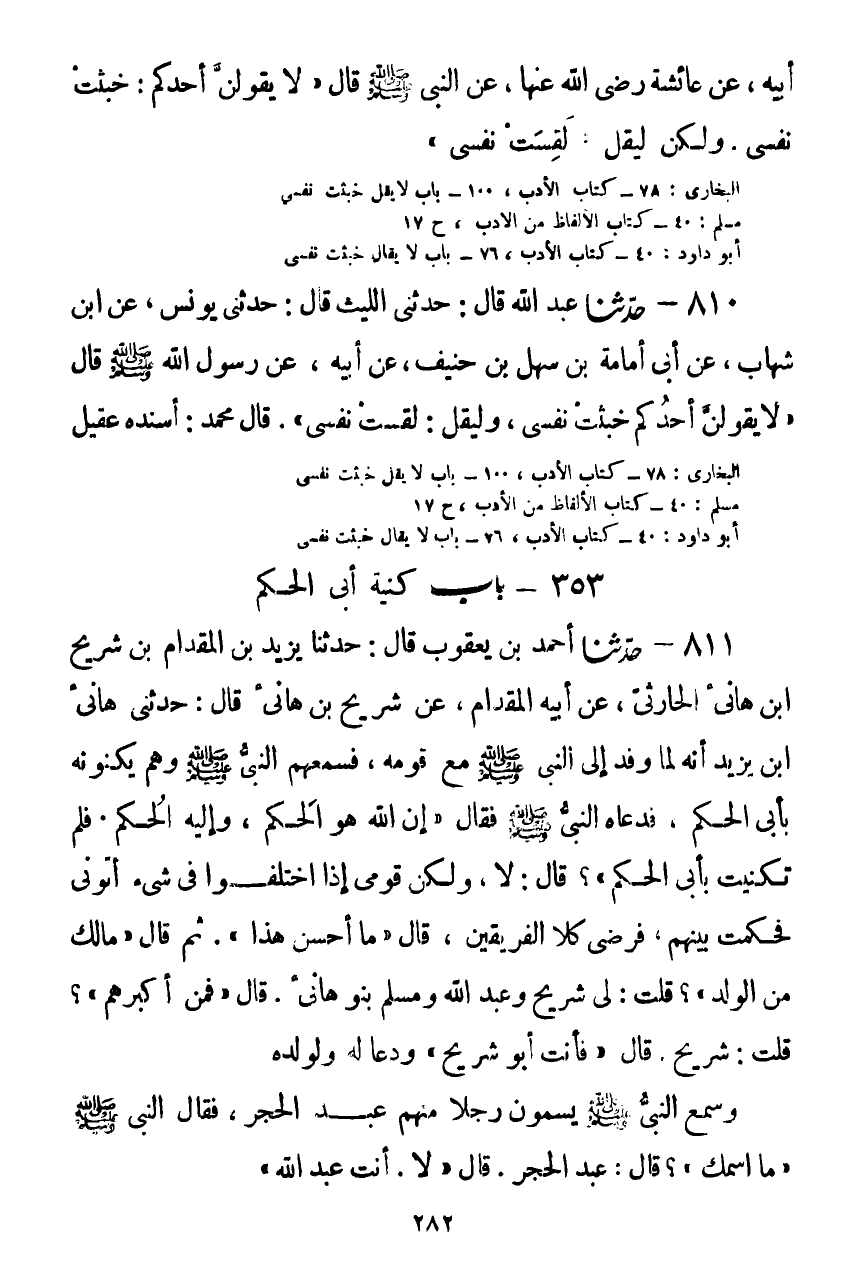 أبيه ، عن عائشة رضى الله عنها ، عن النبى ﷺ قال « لا يقولنَّ أحدكم : خبثتْ
نفسى . ولـكن ليقل : لَقِسَتْ نفسى »
البخارى : ٧٨ ــ كتاب الأدب ، ١٠٠ ــ باب لا يقل خبثت نفسي
مسلم : ٤٠ ــ كتاب الألفاظ من الادب ، ح ١٧
أبو داود : ٤٠ ــ كتاب الأدب ، ٧٦ ــ باب لا يقال خبثت نفسى
٨١٠ – حدّثنا عبد الله قال : حدثنى الليث قال : حدثنى يونس ، عن ابن
شهاب ، عن أبى أمامة بن سهل بن حنيف ، عن أبيه ، عن رسول الله ﷺ قال
« لا يقولنَّ أحدُكم خبثتْ نفسى ، وليقل : لقستْ نفسى» . قال محمد : أسنده عقيل
البخارى : ٧٨ ــ كتاب الأدب ، ١٠٠ ــ باب لا يقل خبثت نفسى
مسلم : ٤٠ ــ كتاب الألفاظ من الأدب ، ح ١٧
أبو داود : ٤٠ ــ كتاب الأدب ، ٧٦ ــ باب لا يقال خبثت نفسى
٣٥٣ – باب كنية أبى الحـكم
٨١١ – حدّثنا أحمد بن يعقوب قال : حدثنا يزيد بن المقدام بن شريح
ابن هانىء الحارثىّ ، عن أبيه المقدام ، عن شريح بن هانىء قال : حدثنى هانىء
ابن يزيد أنه لما وفد إلى النبى ﷺ مع قومه ، فسمعهم النبىُّ ﷺ وهم يكنونه
بأبى الحـكم ، فدعاه النبىُّ ﷺ فقال « إن الله هو الحَـكم ، وإليه الحُـكم . فلم
تـكنيت بأبى الحـكم » ؟ قال : لا ، ولـكن قومى إذا اختلفـــوا فى شىء أتونى
فحـكمت بينهم ، فرضى كلا الفريقين ، قال « ما أحسن هذا » . ثم قال « مالك
من الولد » ؟ قلت : لى شريح وعبد الله ومسلم بنو هانىء . قال « فمن أكبرهم » ؟
قلت : شريح . قال « فأنت أبو شريح » ودعا له ولولده
وسمع النبىُّ ﷺ يسمون رجلا منهم عبـــد الحجر ، فقال النبى ﷺ
« ما اسمك » ؟ قال : عبد الحجر . قال « لا . أنت عبد الله »
٢٨٢